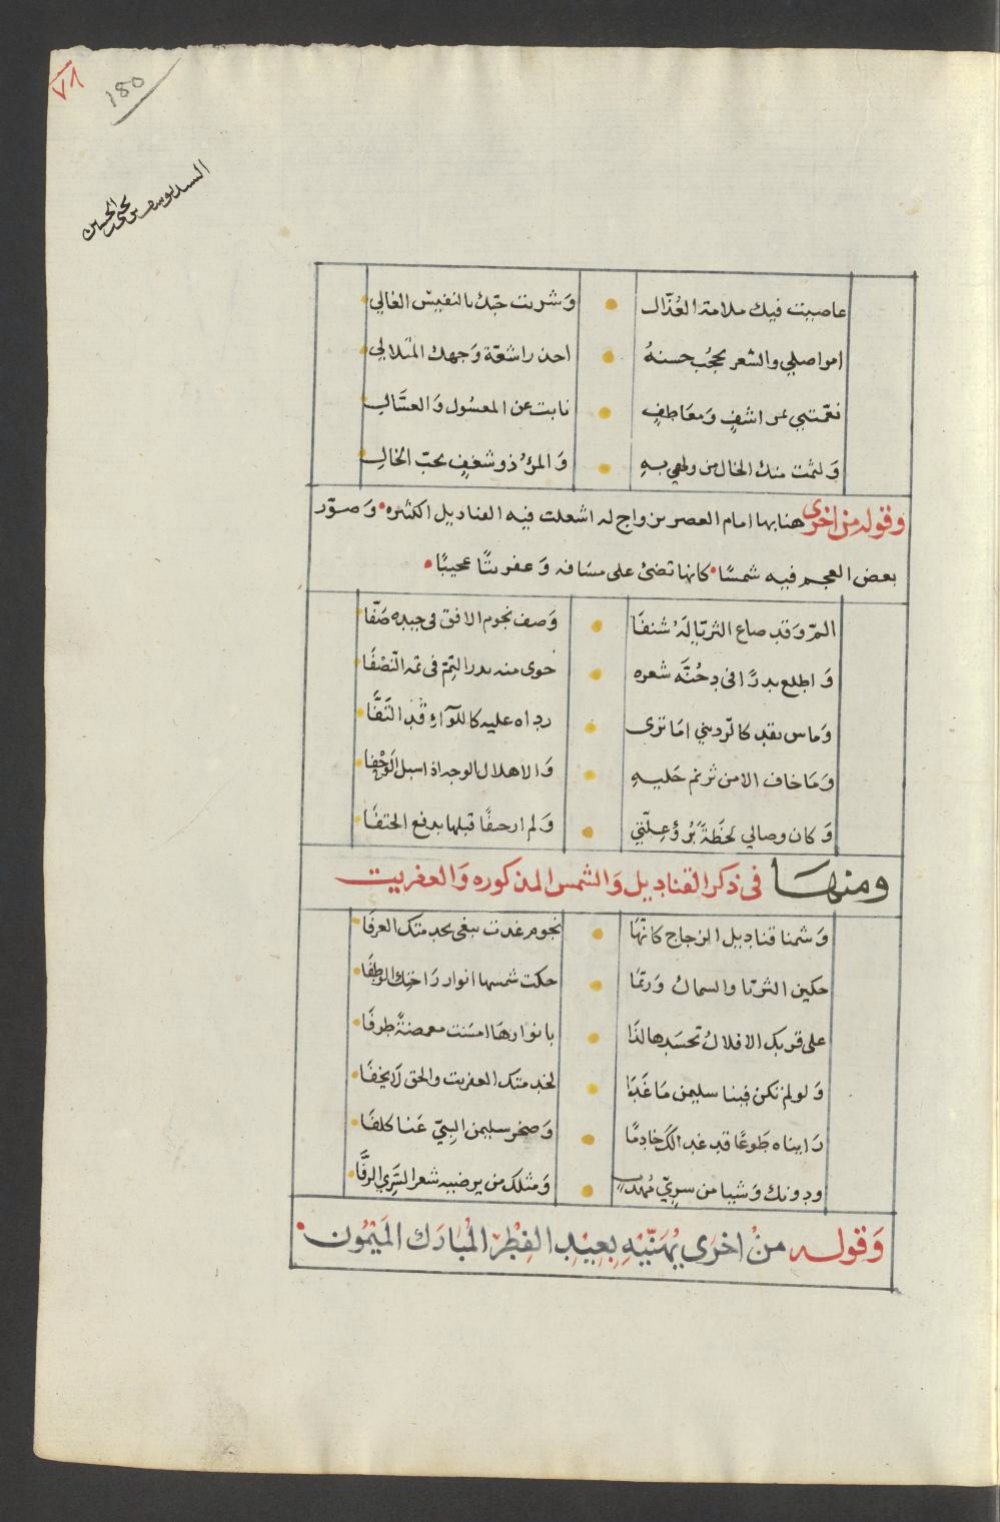 ٧٨
180
السيد يوسف بن يحيى الحسين
عاصيت فيك ملامة العُذّال • وَشربت حبّك بالنفيس الغالي
امواصلي والشعر يحجُب حسنهُ • احذر اشعّة وَجهك المتلالي
نعّمتني بمراشفٍ وَمعَاطفٍ • نابت عن المعسُول وَالعسَّالِ
وَلثمت منك الخال من ولهي بهِ • وَالمرؤ ذو شغفٍ بحبّ الخالِ
وقوله من اخرى هنا بها امام العصر بزواج له اشعلت فيه القناديل الكثيره • وَصوّر
بعض العجم فيه شمسًا • كانها تضئ على مسَافه وَعفريتًا عجيبًا •
المّ وَقد صاغ الثريّا لهُ شنفَا • وَصف نجوم الافق في جيده صَفّا
وَاطلع بدرًا في دجُنَّه شعره • حوى منه بدر التمّ في تمه النّصْفَا
وَماس بقد كالرّديني امَا ترى • رداه عليه كاللوآء وَقد التفَّا
وَمَا خاف الا من ترنم حَليهِ • وَالا هلال الوجد اذ اسبل الوَحْفا
وَكان وصالي لحَظةً بُرؤ عِلّتي • وَلم ار حفًا قبلها يدفع الحتفَا
ومنهَا في ذكر القناديل وَالشمس المذكوره وَالعفريت
وَشمنا قناديل الزجاج كانّهَا • نجوم غدت تبغي بخدمتك العرفَا
حكين الثريّا والسماك وَربّما • حكت شمسها انوار رَاحتك الوطفَا
على قربك الافلاك تحسَدها لذَا • بانوارهَا امسَت مغمضةً طرفَا
وَلو لم تكن فينا سليمن مَا غَدَا • لخدمتك العفريت والحق لَا يخفَا
رَايناه طَوعًا قد غدا لكَ خادمًا • وَصخر سليمن النبيّ عَنا كلفَا
ودونك وَشيا من سريّ مُهذبٍ • وَمثلك من يرضيه شعر السَري الرفَّا
وَقوله منْ اخرَى يُهَنّيْهِ بِعِيْدِ الفِطْرِ المُبَارَك المَيْمُون •